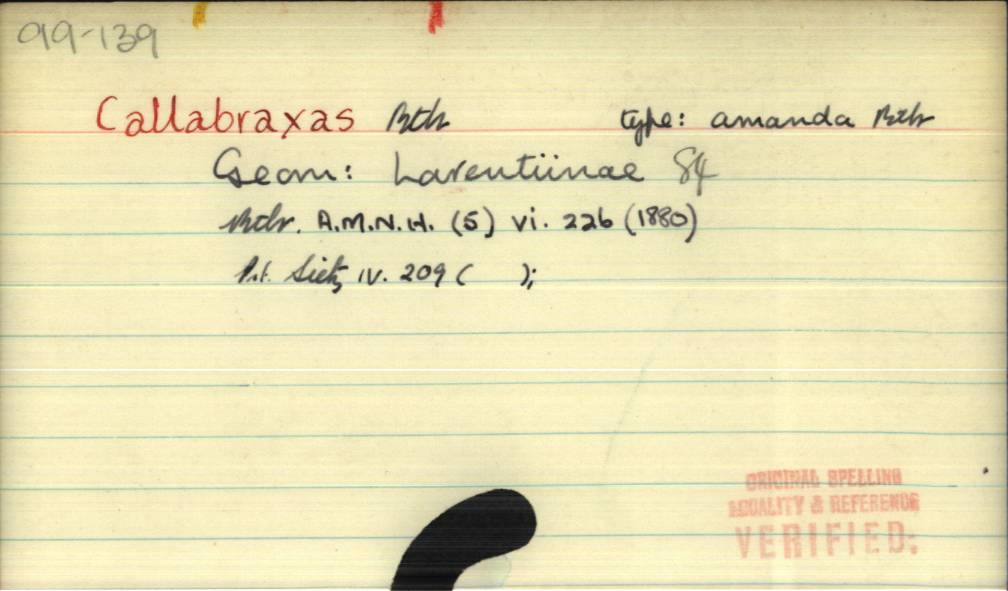 99-139
Callabraxas Btlr type: amanda Btlr
Geom: Larentiinae 84
Btlr. A.M.N.H. (5) vi. 226 (1880)
Prt. Sietz IV. 209 ( );
ORIGINAL SPELLING
LOCALITY & REFERENCE
VERIFIED: